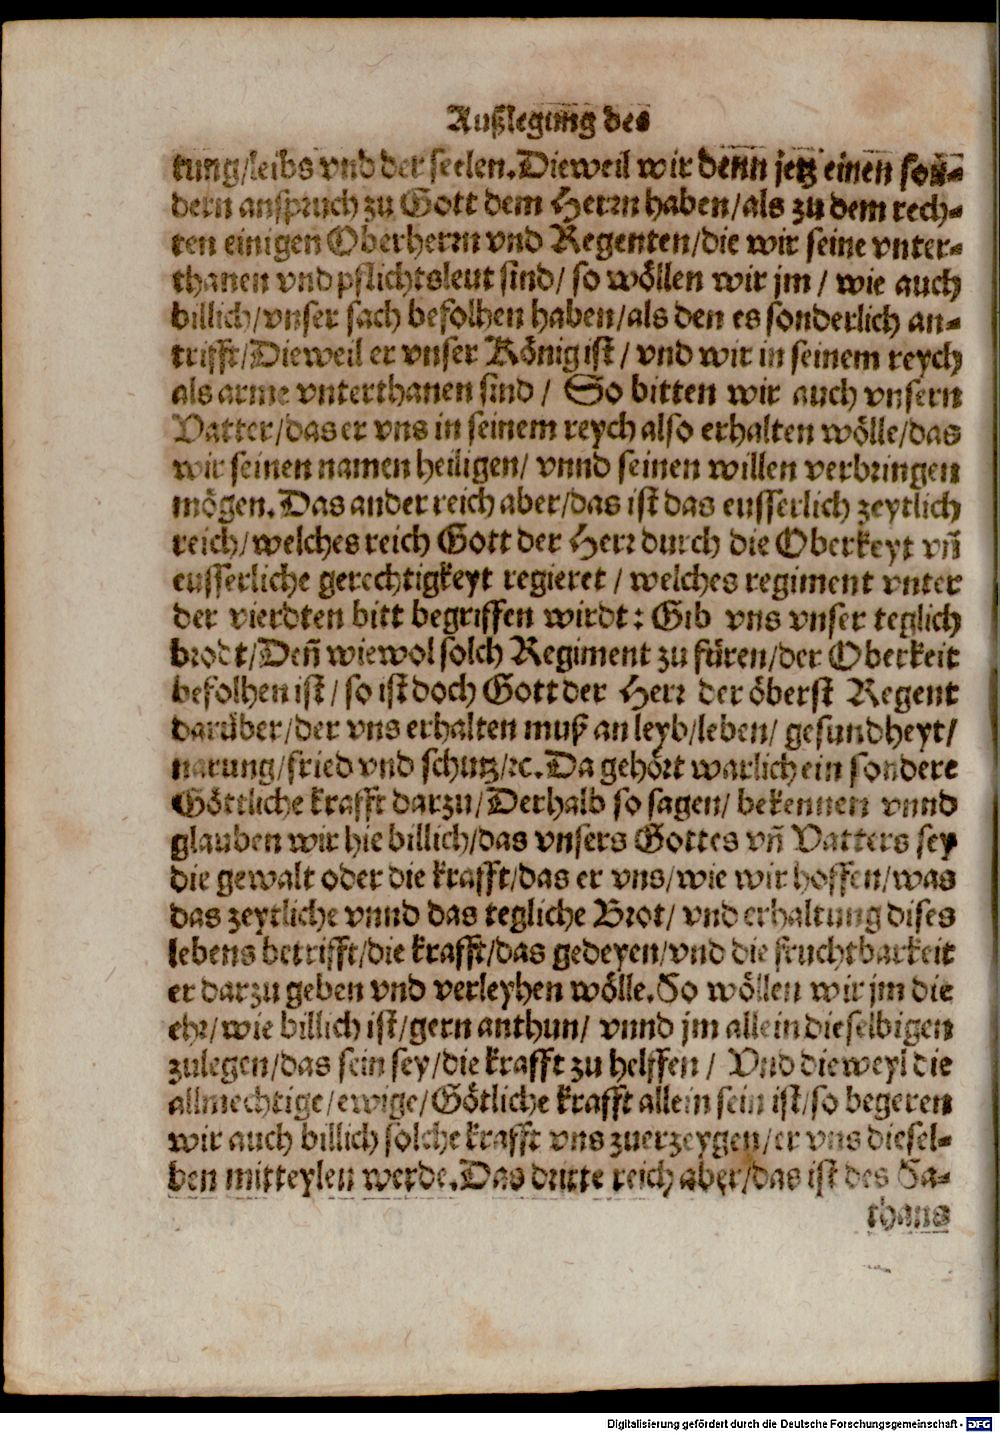 Außlegung des
tung/leibs vnd der seelen. Dieweil wir denn jetz einen son-
dern anspruch zu Gott dem Herrn haben/als zu dem rech-
ten einigen Oberherrn vnd Regenten/die wir seine vnter-
thanen vnd pflichtsleut sind/ so wöllen wir jm / wie auch
billich/vnser sach befolhen haben/als den es sonderlich an-
trifft/Dieweil er vnser König ist / vnd wir in seinem reych
als arme vnterthanen sind / So bitten wir auch vnsern
Vatter/das er vns in seinem reych also erhalten wölle/das
wir seinen namen heiligen/ vnnd seinen willen verbringen
mögen. Das ander reich aber/das ist das eusserlich zeytlich
reich/welches reich Gott der Herr durch die Oberkeyt vñ
eusserliche gerechtigkeyt regieret / welches regiment vnter
der vierdten bitt begriffen wirdt: Gib vns vnser teglich
brodt/Deñ wiewol solch Regiment zu füren/der Oberkeit
befolhen ist/ so ist doch Gott der Herr der öberst Regent
darüber/der vns erhalten muß an leyb/leben/ gesundheyt/
narung/fried vnd schutz/ꝛc. Da gehört warlich ein sondere
Göttliche krafft darzu/Derhalb so sagen/ bekennen vnnd
glauben wir hie billich/das vnsers Gottes vñ Vatters sey
die gewalt oder die krafft/das er vns/wie wir hoffen/was
das zeytliche vnnd das tegliche Brot/ vnd erhaltung dises
lebens betrifft/die krafft/das gedeyen/vnd die fruchtbarkeit
er darzu geben vnd verleyhen wölle. So wöllen wir jm die
ehr/wie billich ist/gern anthun/ vnnd jm allein dieselbigen
zulegen/das sein sey/die krafft zu helffen / Vnd dieweyl die
allmechtige/ewige/Götliche krafft allein sein ist/so begeren
wir auch billich solche krafft vns zuerzeygen/er vns diesel-
ben mitteylen werde. Das dritte reich aber/das ist des Sa-
thans
Digitalisierung gefördert durch die Deutsche Forschungsgemeinschaft - DFG